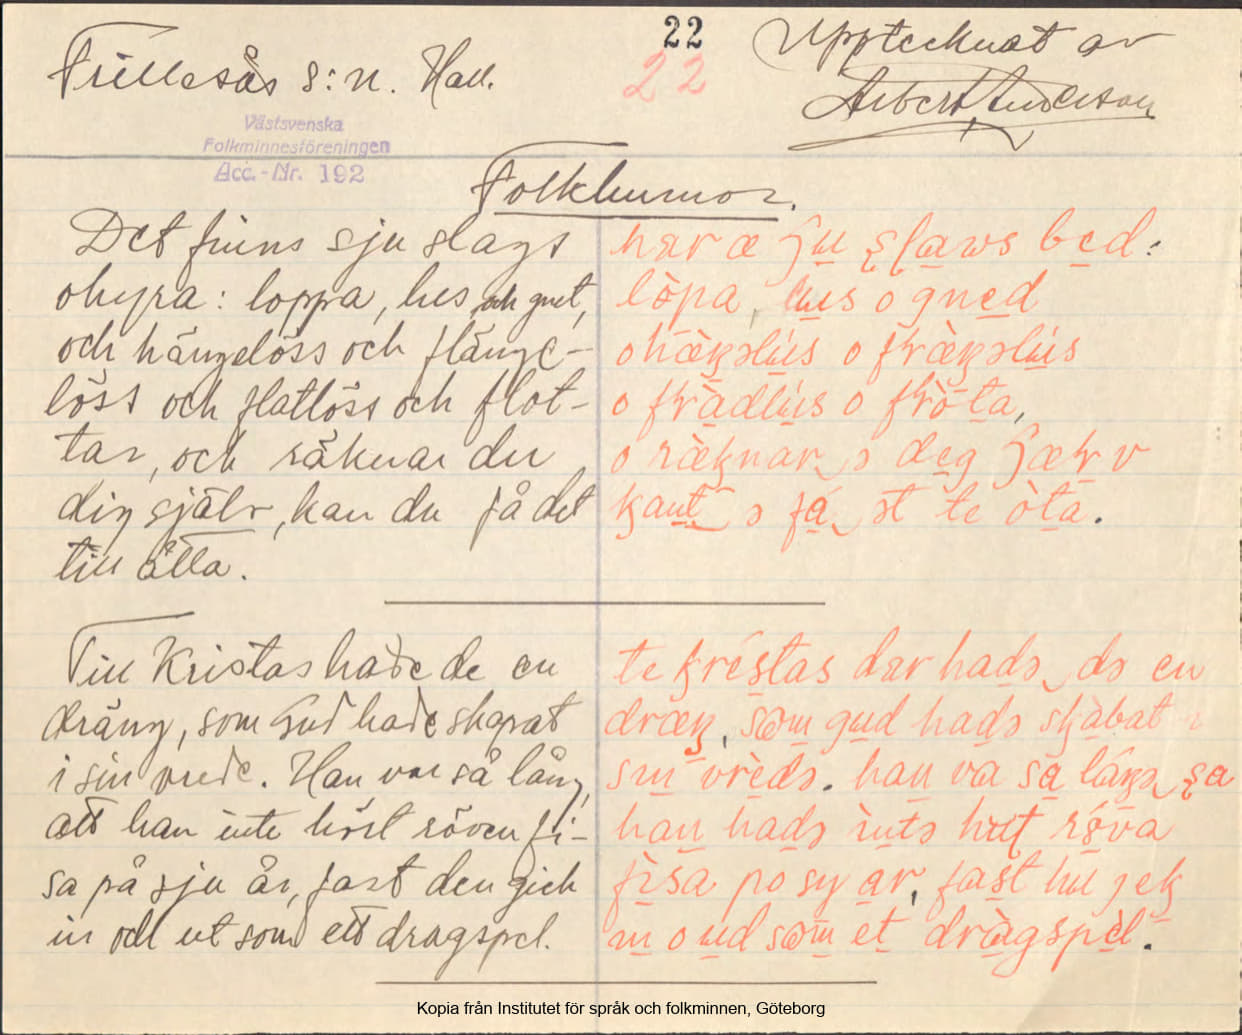 22
Frillesås s:n. Hall.
22
Upptecknat av
Albert Anderson
Västsvenska
Folkminnesföreningen
Acc.-Nr. 192
Folkhumor.
Det finns sju slags
ohyra: loppa, lus och gnet,
och hängelöss och flänge-
löss och flatlöss och flot-
tar, och räknar du
dig själv, kan du få det
till åtta.
har æ ſu slaws bed:
lòpa, lus o gned
o hæŋəlús o fræŋəlús
o fràdlús o fròta,
o ræknar ə deg ſæhv
kant ə fá ət te òta.
Till Kristas hade de en
dräng, som Gud hade skapat
i sin vrede. Han var så lång,
att han inte hört röven fi-
sa på sju år, fast den gick
in och ut som ett dragspel.
te kréstas dar hadə də en
dræŋ, som gud hadə skàbat i
sin vrèdə. han va sa láŋə sa
han hadə intə hut rǿva
fìsa po sy ar, fast hu jek
in o ud som et dràgspèl.
Kopia från Institutet för språk och folkminnen, Göteborg